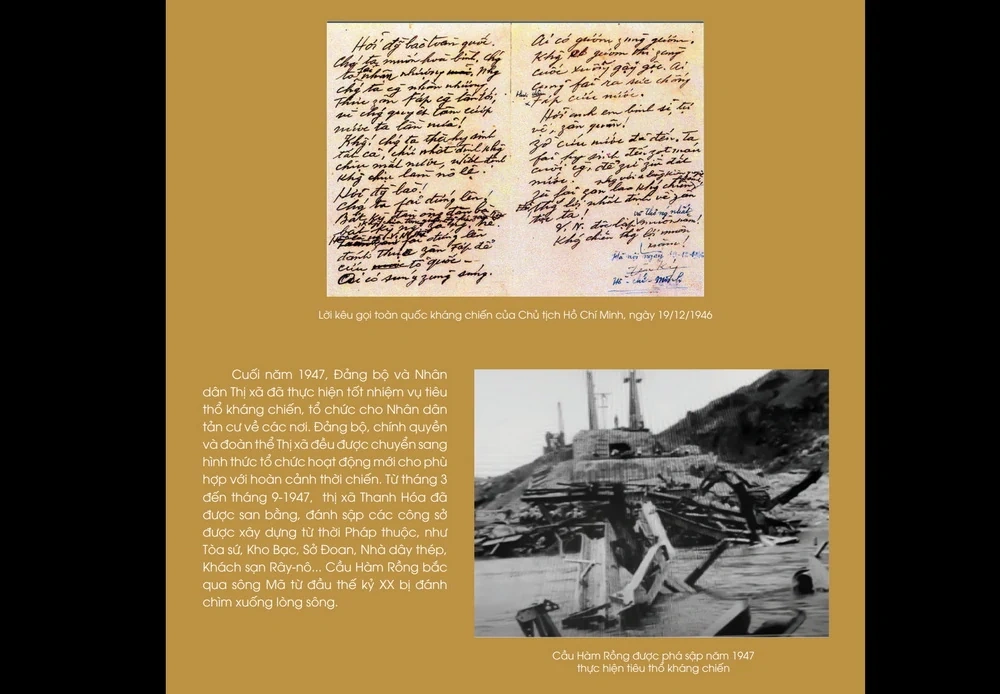 Hỡi đồng bào toàn quốc.
Chúng ta muốn hoà bình, chúng
ta fải nhân nhượng.
chúng ta cg nhân nhượng
thực zân Fáp cg lấn tới,
vì chúng quyết tâm cướp
nước ta lần nữa!
Khg! chúng ta thà hy sinh
tất cả, chứ nhất định khg
chịu mất nước, nhất định
khg chịu làm nô lệ.
Hỡi đồng bào!
Chúng ta fải đứng lên!
fải đứng lên
đánh thực zân Fáp để
cứu tổ quốc
Ai có súng zùng súng.
Ai có gươm zùng gươm.
Khg có gươm thì zùng
cuốc xuổng gậy gộc. Ai
cũng fải ra sức chống
Fáp cứu nước.
Hỡi anh em binh sĩ, tự
vệ, zân quân!
Zờ cứu nước đã đến. Ta
fải hy sinh đến zọt máu
cuối cg, để zữ zìn đất
nước.
Zù fải zan lao khg chiến
thắng lợi nhất định về zân
tộc ta!
và thống nhất
V.N. độc lập muôn năm!
Khg chiến thắng lợi muôn
năm!
Hà nội ngày
Hồ-chí-Minh
Lời kêu gọi toàn quốc kháng chiến của Chủ tịch Hồ Chí Minh, ngày 19/12/1946
Cuối năm 1947, Đảng bộ và Nhân
dân Thị xã đã thực hiện tốt nhiệm vụ tiêu
thổ kháng chiến, tổ chức cho Nhân dân
tản cư về các nơi. Đảng bộ, chính quyền
và đoàn thể Thị xã đều được chuyển sang
hình thức tổ chức hoạt động mới cho phù
hợp với hoàn cảnh thời chiến. Từ tháng 3
đến tháng 9-1947, thị xã Thanh Hóa đã
được san bằng, đánh sập các công sở
được xây dựng từ thời Pháp thuộc, như
Tòa sứ, Kho Bạc, Sở Đoan, Nhà dây thép,
Khách sạn Rây-nô... Cầu Hàm Rồng bắc
qua sông Mã từ đầu thế kỷ XX bị đánh
chìm xuống lòng sông.
Cầu Hàm Rồng được phá sập năm 1947
thực hiện tiêu thổ kháng chiến